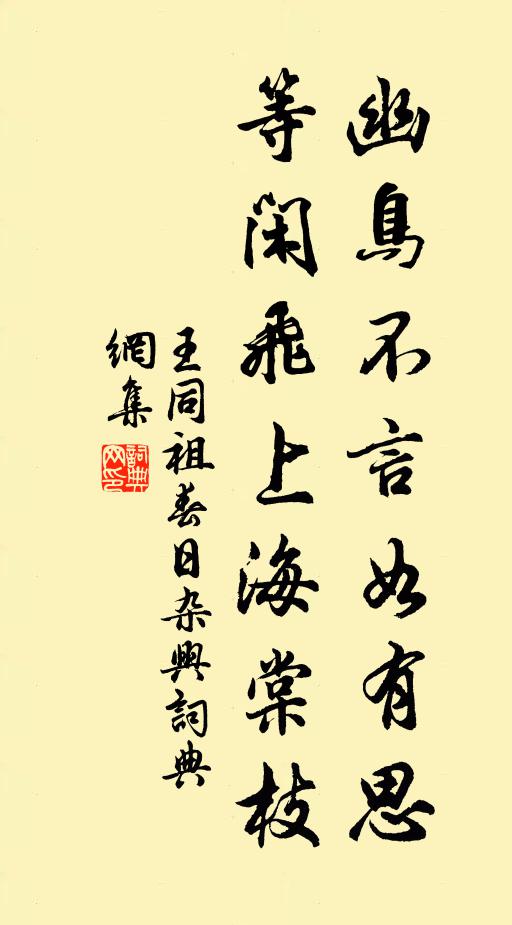 幽鳥不言如有思
等閑飛上海棠枝
王同祖春日杂興詞典
網集
詞典網印